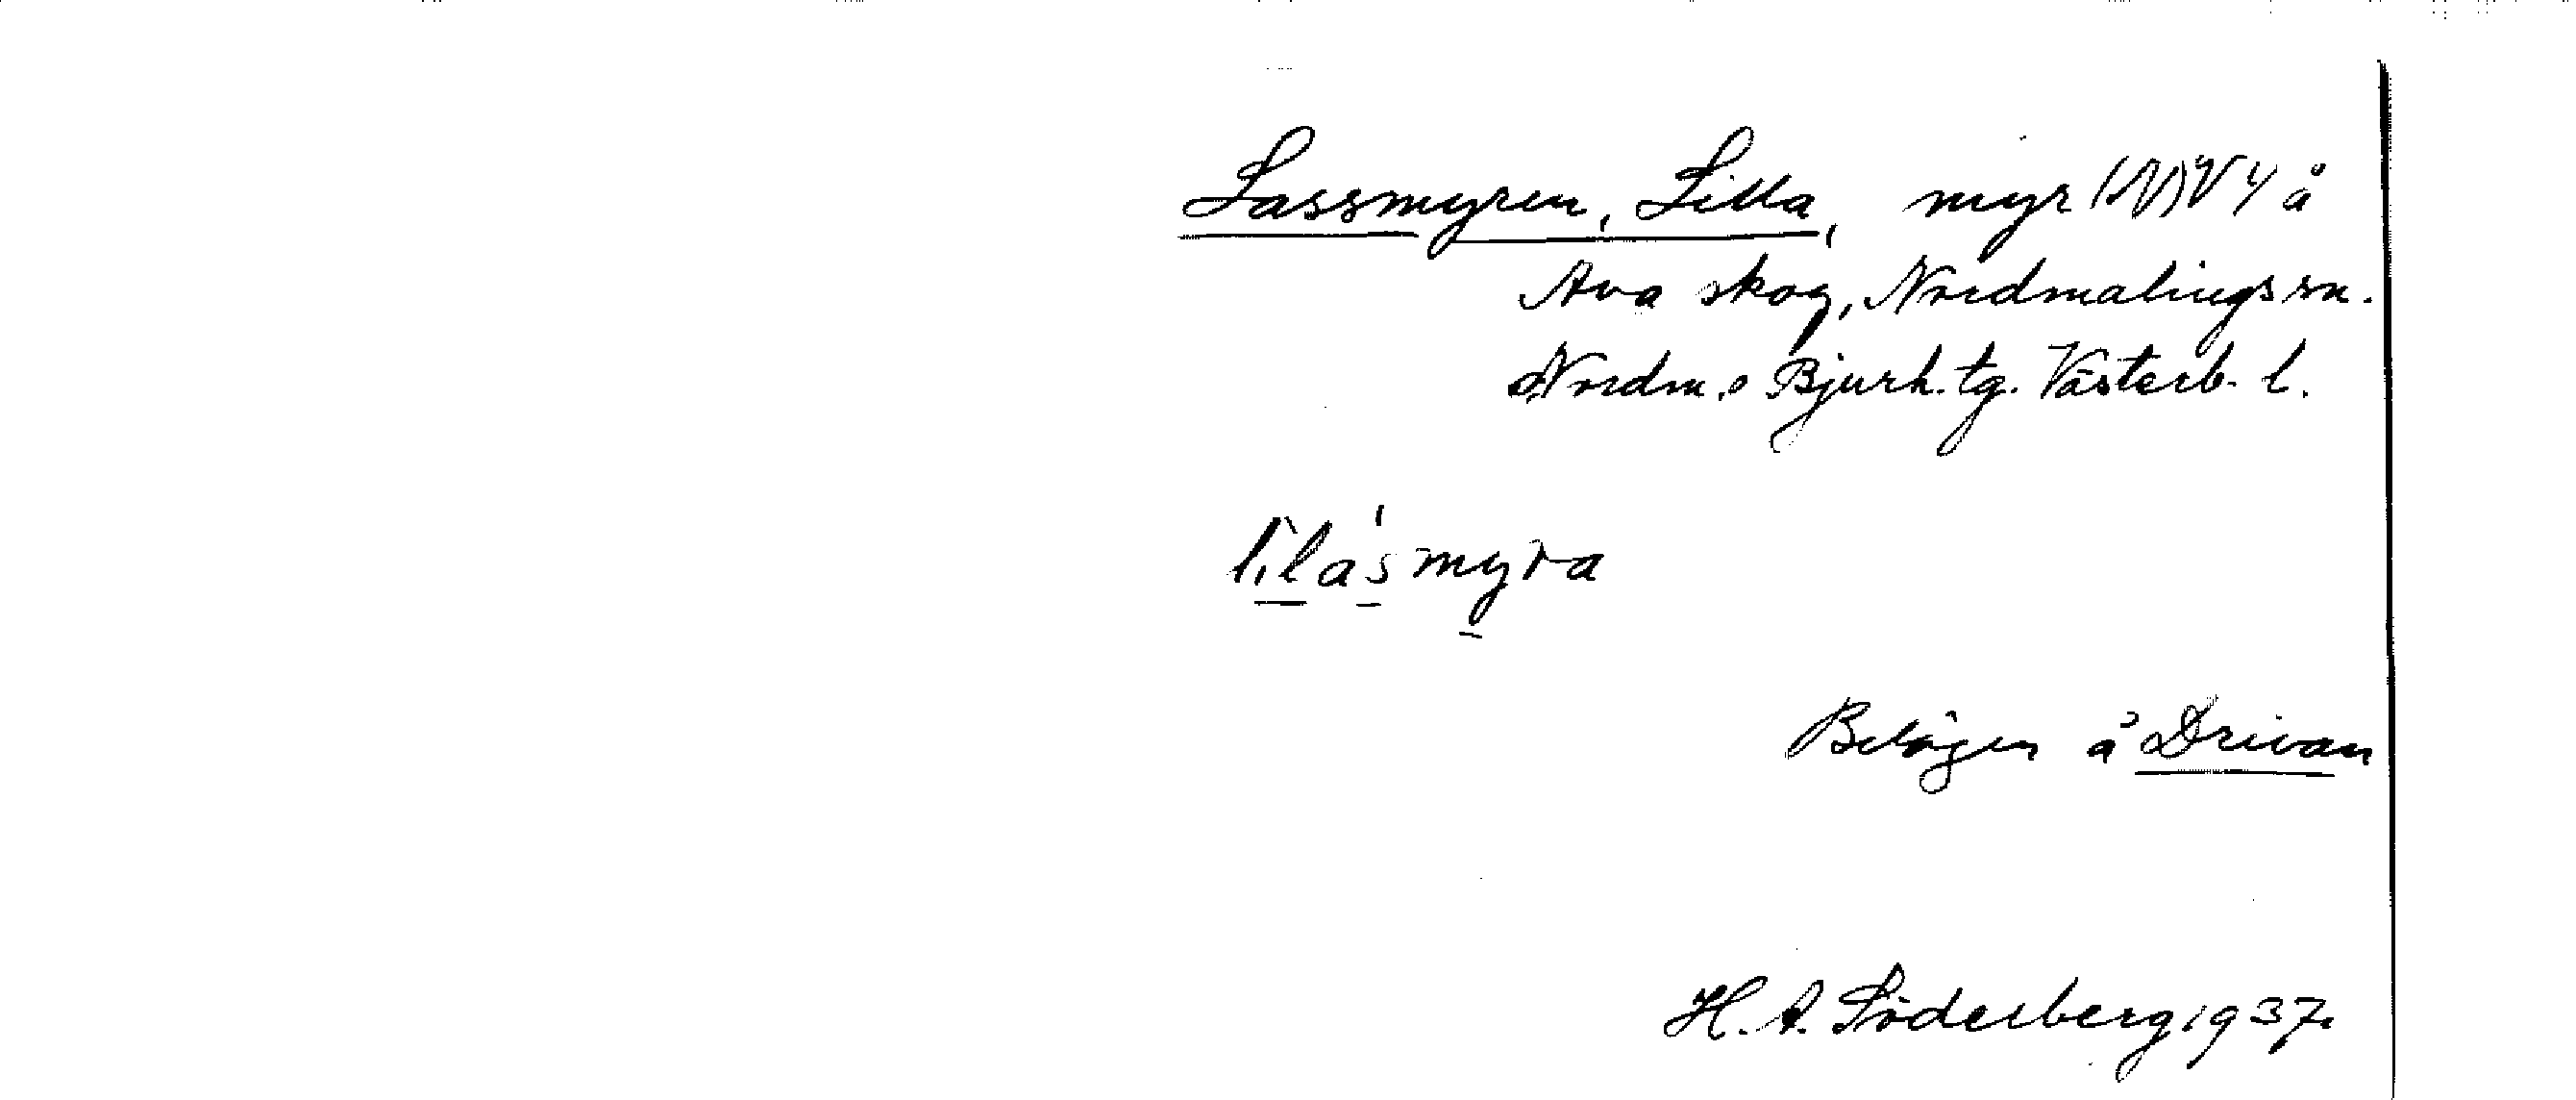 Lassmyren, Lilla, myr (N)V 4 å
Ava skog, Nordmalings sn.
Nordm. o Bjurh. tg. Västerb. l.
lìlásmyra
Belägen å Drivan
H. A. Söderberg 1937.